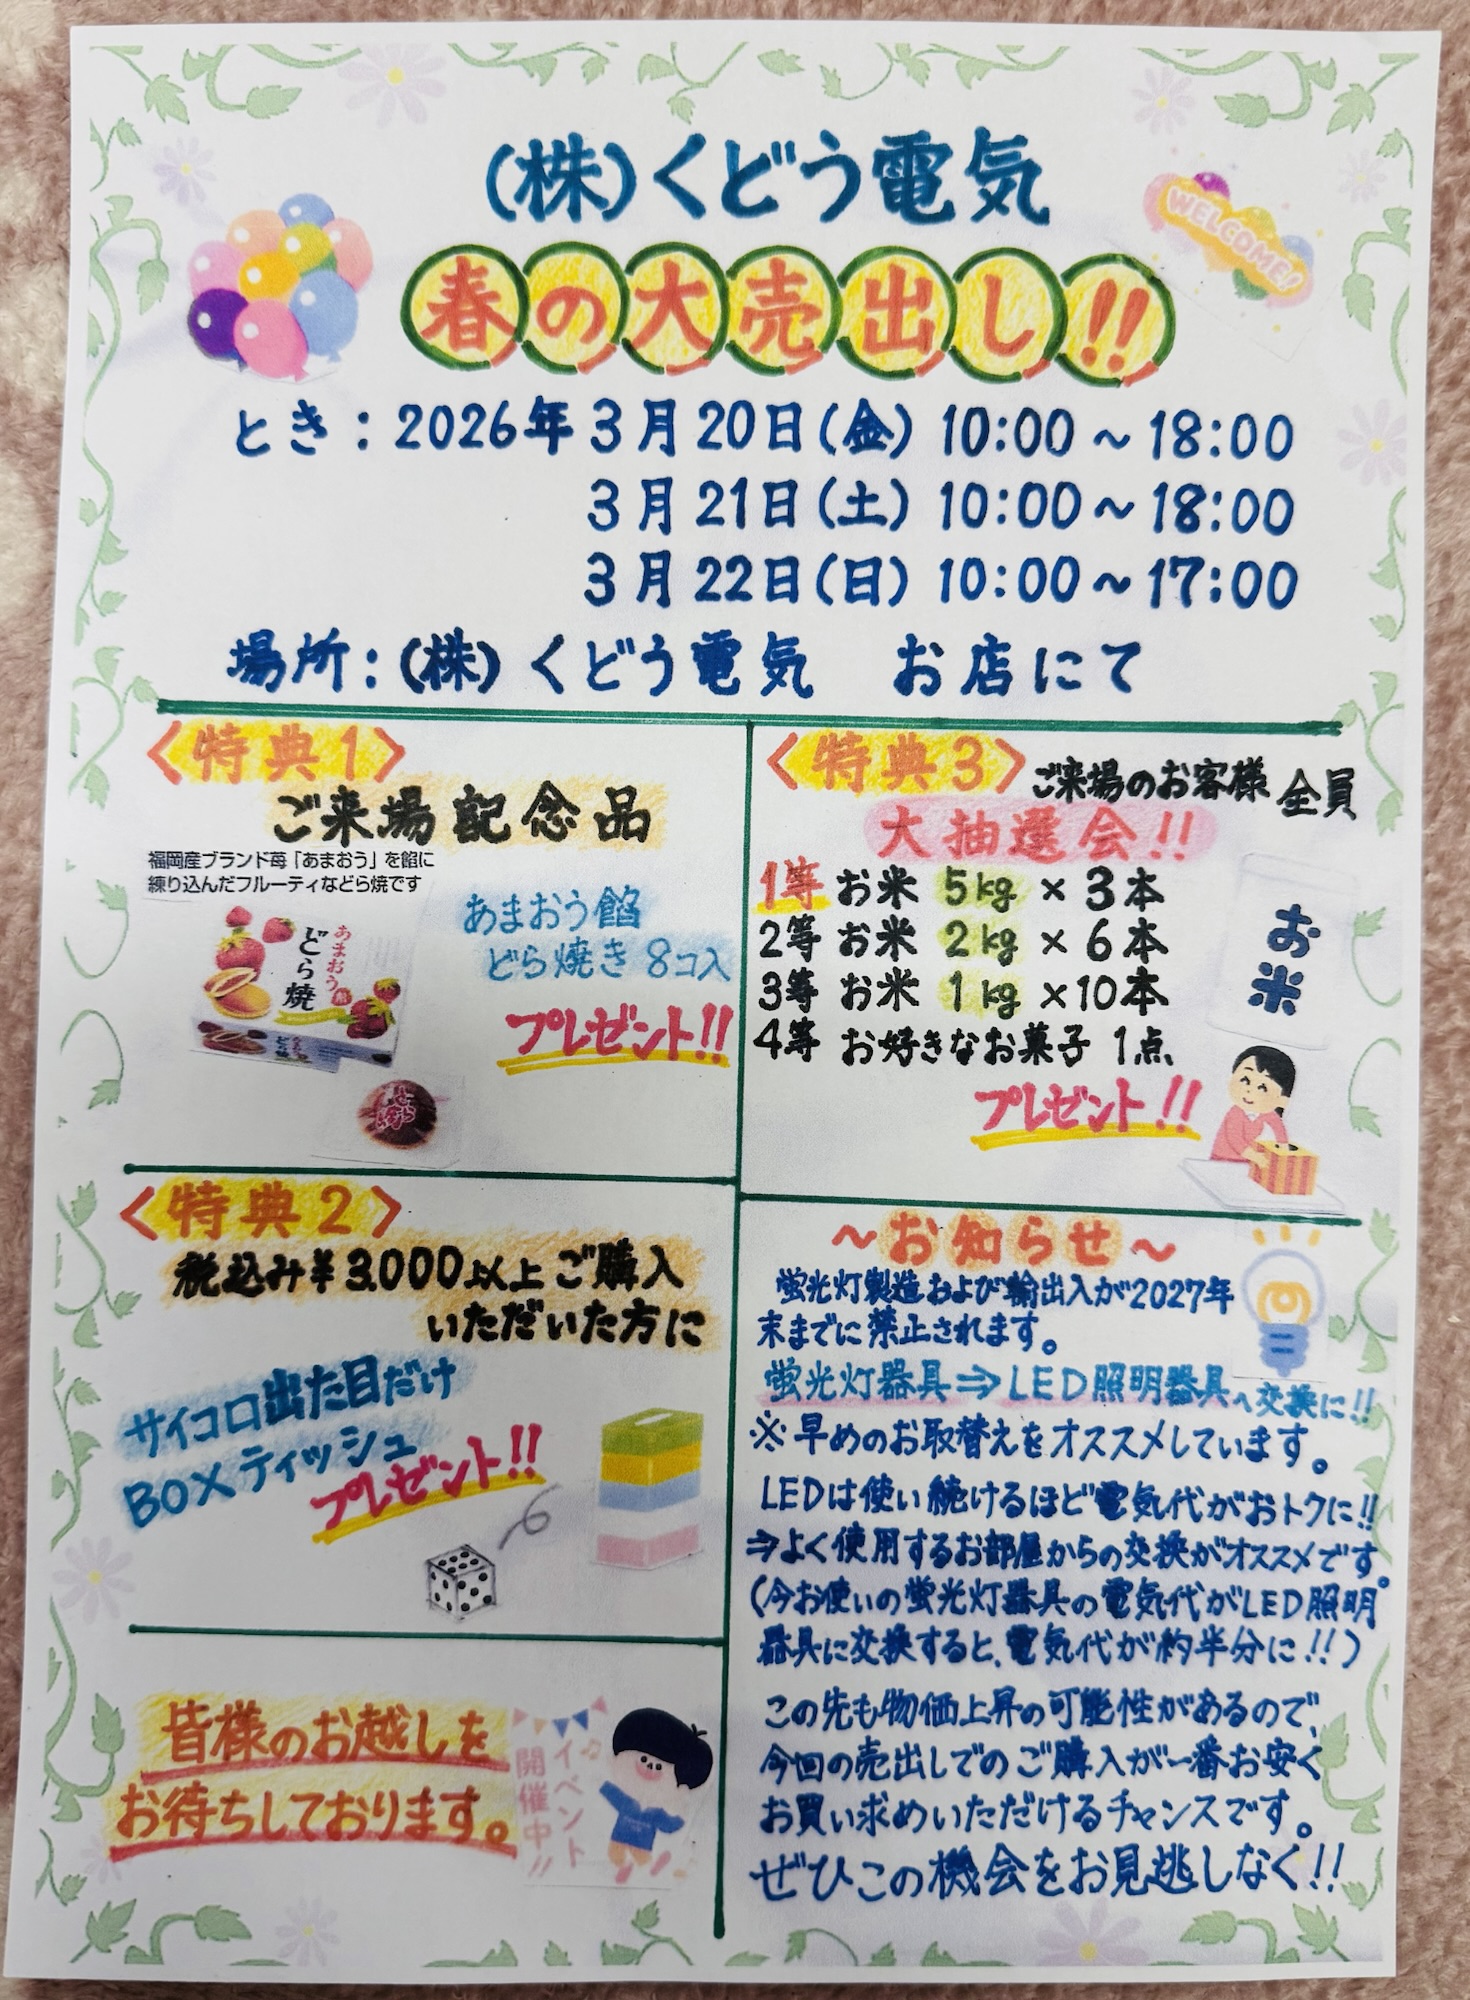 (株)くどう電気
WELCOME!
春の大売出し!!
とき：2026年3月20日(金) 10:00～18:00
3月21日(土) 10:00～18:00
3月22日(日) 10:00～17:00
場所：(株)くどう電気　お店にて
〈特典1〉
ご来場記念品
福岡産ブランド苺「あまおう」を餡に
練り込んだフルーティなどら焼です
あまおう餡
どら焼き 8コ入
プレゼント!!
あまおう餡
どら焼
〈特典2〉
税込み¥3,000以上ご購入
いただいた方に
サイコロ出た目だけ
BOXティッシュ
プレゼント!!
皆様のお越しを
お待ちしております。
イベント
開催中!!
〈特典3〉ご来場のお客様 全員
大抽選会!!
1等 お米 5kg × 3本
2等 お米 2kg × 6本
3等 お米 1kg ×10本
4等 お好きなお菓子 1点
プレゼント!!
お米
～お知らせ～
蛍光灯製造および輸出入が2027年
末までに禁止されます。
蛍光灯器具⇒LED照明器具へ交換に!!
※早めのお取替えをオススメしています。
LEDは使い続けるほど電気代がおトクに!!
⇒よく使用するお部屋からの交換がオススメです。
(今お使いの蛍光灯器具の電気代がLED照明
器具に交換すると、電気代が約半分に!!)
この先も物価上昇の可能性があるので、
今回の売出しでのご購入が一番お安く
お買い求めいただけるチャンスです。
ぜひこの機会をお見逃しなく!!